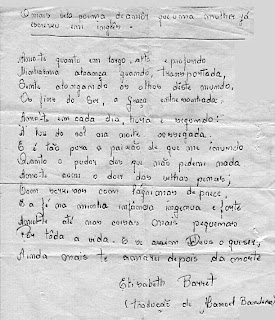 O mais belo poema de amor que uma mulher já
escreveu em inglês.
Amo-te quanto em largo, alto e profundo
Minh'alma alcança quando, transportada,
Sente, alongando os olhos deste mundo,
Os fins do Ser, a Graça entressonhada.
Amo-te em cada dia, hora e segundo:
À luz do sol, na noite sossegada.
E é tão pura a paixão de que me inundo
Quanto o pudor dos que não pedem nada
Amo-te com o dor das velhas penas;
Com sorrisos com lágrimas de prece
E a fé na minha infância ingênua e forte
Amo-te até nas coisas mais pequenas
Por tôda a vida. E se assim Deus o quiser,
Ainda mais te amarei depois da morte
Elisabeth Barret
(tradução de Manoel Bandeira)